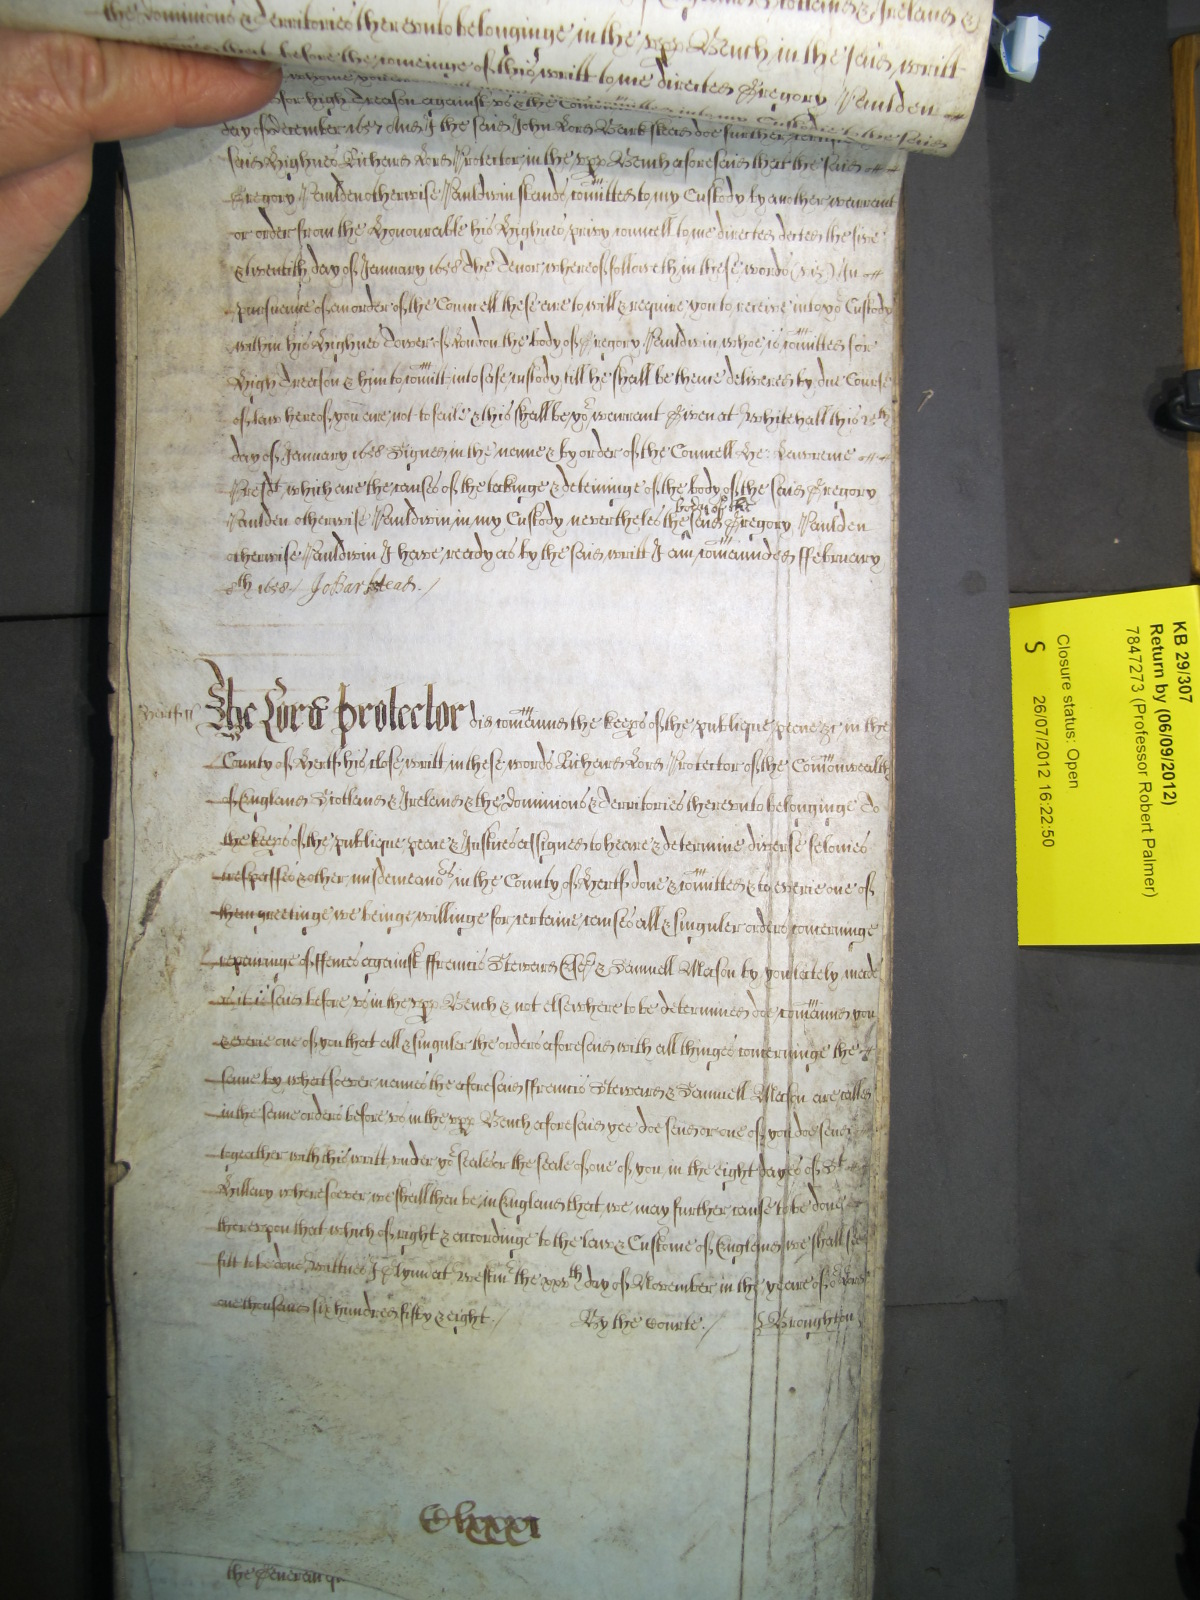 the dominions & Territories therevnto belonginge in the vpp Bench in the said writt
before the comeinge of this writt to me directed Gregory Paulden
for high Treason against
day of December 1657 And I the said John Lord Barkstead doe further certifie
said Highnes Richard Lord Protector in the vpp Bench aforesaid that the said
Gregory Paulden otherwise Pauldwin stands comitted to my Custody by another warrant
or order from the Honourable his Highnes privy councell to me directed dated the five
& twentith day of January 1658 The tenor whereof followeth in these words (viz) In
pursuance of an order of the Councell these are to will & require you to receive into yor Custody
within his Highnes Tower of London the body of Gregory Pauldwin whoe is comitted for
High Treason & him to comitt into safe custody till he shall be thence delivered by due Course
of law hereof you are not to faile & this shall be yor warrant Given at Whitehall this 25th
day of January 1658 Signed in the name & by order of the Councell He: Lawrence
Presdt which are the causes of the takinge & deteininge of the body of the said Gregory
Paulden otherwise Pauldwin in my Custody nevertheles the body of the said Gregory Paulden
otherwise Pauldwin I have ready as by the said writt I am comaunded ffebruary
8th 1658 / Jo Barkstead. /
Hertf ss The Lord Protector did comaund the keeps of the publique peace &c in the
County of Hertf his close writt in these words Richard Lord Protector of the Comonwealth
of England Scotland & Ireland & the dominions & Territories therevnto belonginge To
the keeps of the publique peace & Justices assigned to heare & determine diverse felonies
trespasses & other misdemeanors in the County of Hertf done & comitted & to everie one of
them greetinge we beinge willinge for certaine causes all & singuler orders concerninge
repairinge of ffences against ffrancis Steward Esqr & Samuell Mason by you lately made
as it is said before vs in the vpp Bench & not elsewhere to be determined doe comaund you
& everie one of you that all & singuler the orders aforesaid with all thinges concerninge the
same by whatsoever names the aforesaid ffrancis Steward & Samuell Mason are called
in the same orders before vs in the vpp Bench aforesaid yee doe send or one of you doe send
togeather with this writt vnder yor seales or the seale of one of you in the eight dayes of St
Hillary wheresoever we shall then be in England that we may further cause to be done
therevpon that which of right & accordinge to the law & Custome of England we shall see
fitt to be done wittnes J Glynn at Westmr the xxvth day of November in the yeare of or Lord
one thousand six hundred fifty & eight. / By the Courte. / S Broughton
the Generall qr
KB 29/307
Return by (06/09/2012)
7847273 (Professor Robert Palmer)
Closure status: Open
S 26/07/2012 16:22:50